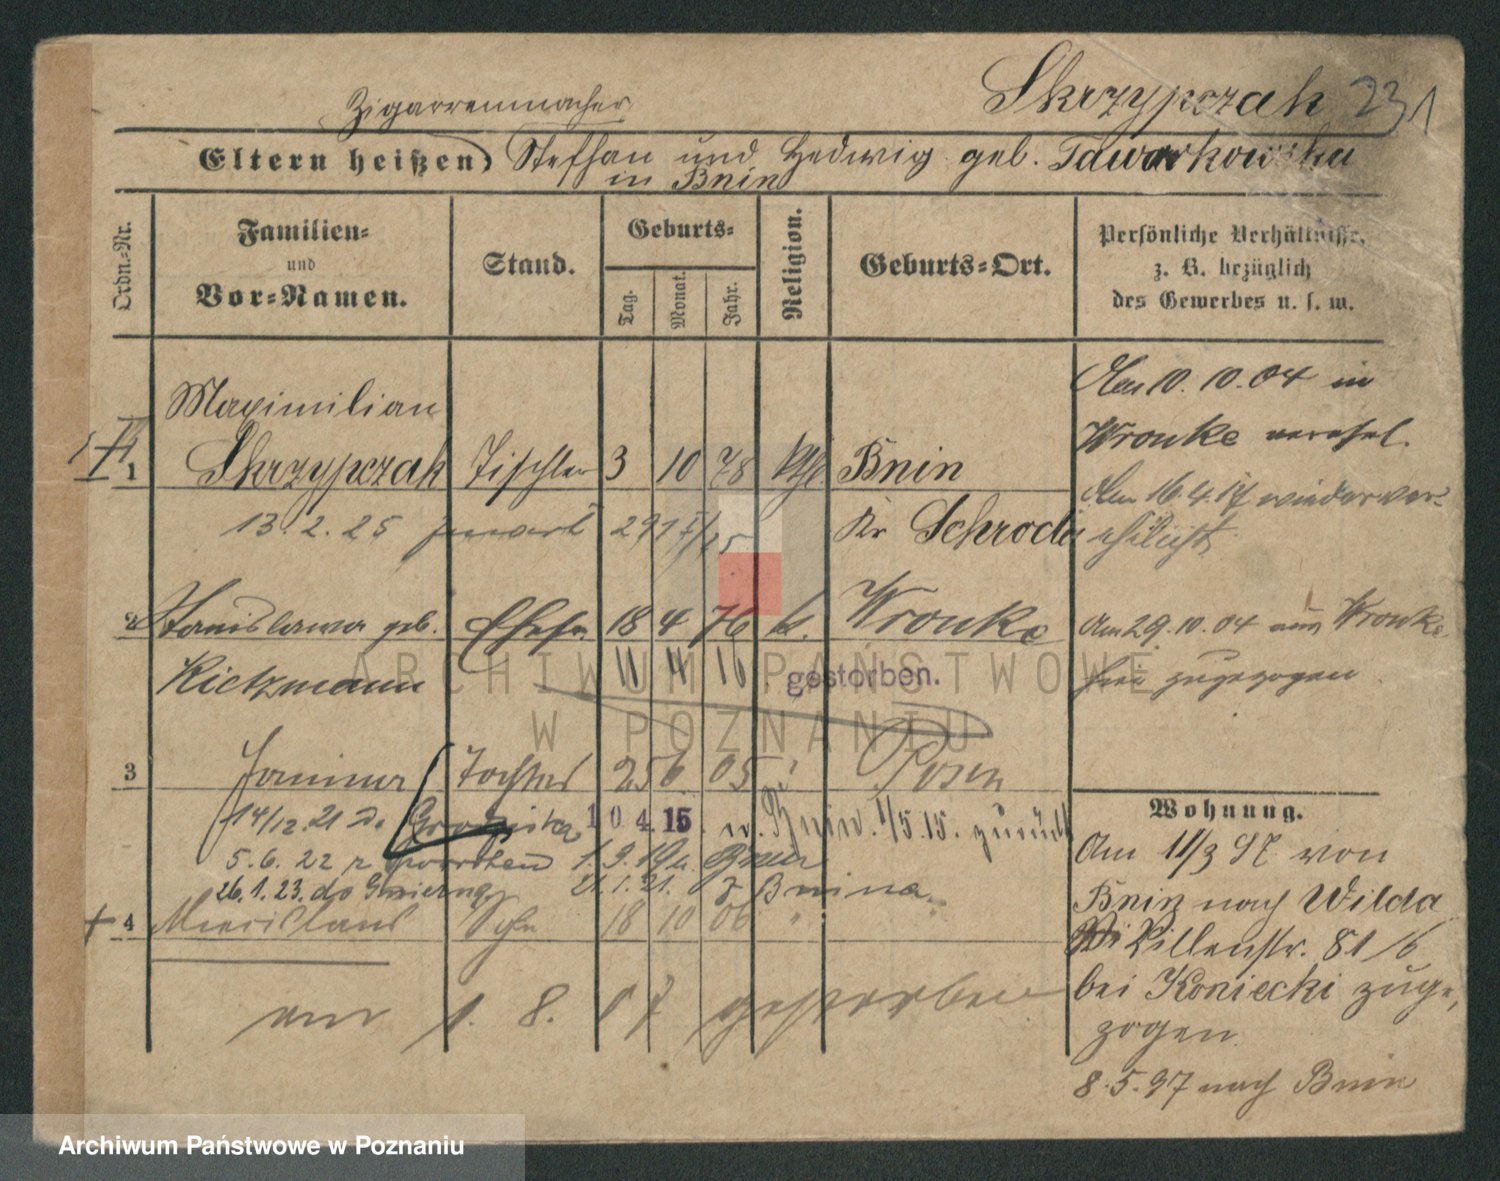 Skrzypczak 231
Zigarrenmacher
Eltern heißen Stefhan und Hedwig geb.
in Bnin
Ordn.-Nr.
Familien-
und
Vor-Namen.
Stand.
Geburts-
Tag.
Monat.
Jahr.
Religion.
Geburts-Ort.
Persönliche Verhältnisse,
z. B. bezüglich
des Gewerbes u. s. w.
Maximilian
1 Skrzypczak Tischler 3 10 78 kth Bnin
13.2.25
Kr Schroda
Am 10.10.04 in
Wronke verehel.
Am 16.4.17 wiederver-
ehelicht
2 Stanislawa geb. Ehefr 18 4 76 k. Wronke
Rietzmann 11 4 16 gestorben.
Am 29.10.04 aus Wronke
hier zugezogen
3 Janina Tochter 25 6 05 Posen
14/12.21 10 4. 15. Bnin. 1/5.15. zurück
5.6.22
26.1.23. do 21.1.21. z Bnina
4 18 10 06
am 1. 8. 07 gestorben
Wohnung.
Am 11/3 97 von
Bnin nach Wilda
Killenstr. 81/6
bei Koniecki zuge-
zogen
8.5.97 nach Bnin
ARCHIWUM PAŃSTWOWE
W POZNANIU
Archiwum Państwowe w Poznaniu